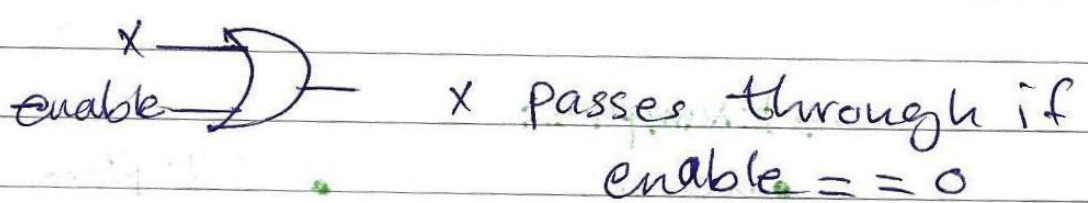 x
enable
x passes through if
enable == 0